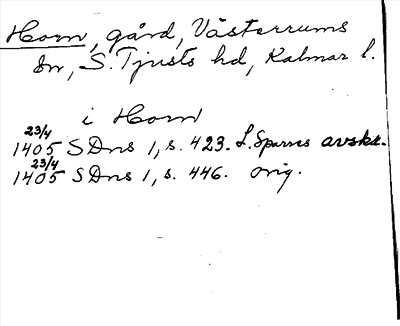 Horn, gård, Västerrums
sn, S. Tjusts hd, Kalmar l.
i Horn
23/4
1405 SDns 1, s. 423. L. Sparres avskr.
23/4
1405 SDns 1, s. 446. orig.